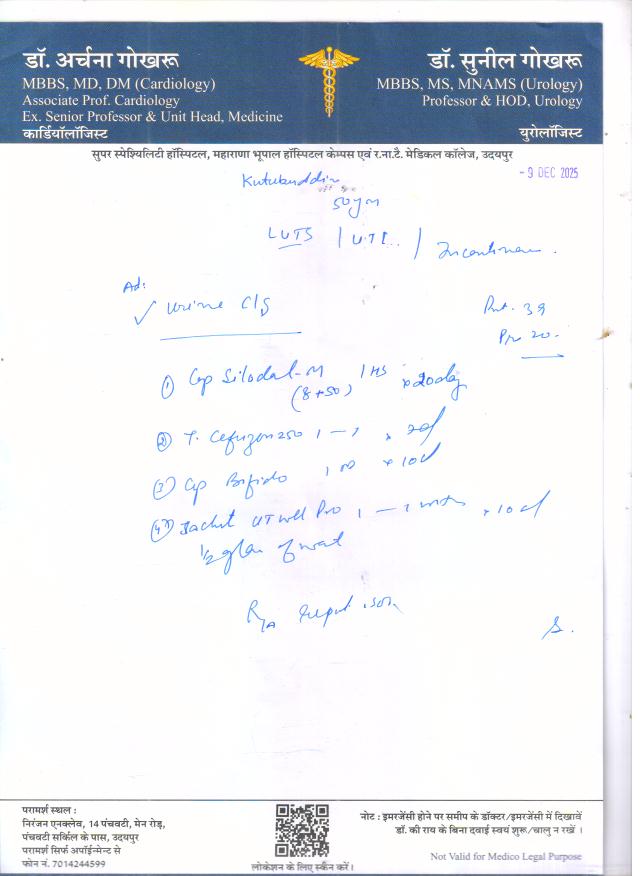 डॉ. अर्चना गोखरू
MBBS, MD, DM (Cardiology)
Associate Prof. Cardiology
Ex. Senior Professor & Unit Head, Medicine
कार्डियॉलॉजिस्ट
डॉ. सुनील गोखरू
MBBS, MS, MNAMS (Urology)
Professor & HOD, Urology
युरोलॉजिस्ट
सुपर स्पेश्यिलिटी हॉस्पिटल, महाराणा भूपाल हॉस्पिटल केम्पस एवं र.ना.टै. मेडिकल कॉलेज, उदयपुर
- 9 DEC 2025
Kutubuddin
50ym
LUTS / UTI.. /
Ad:
✓ Urine C/S
39
20.
① Cap Silodal-M 1 HS x 20 day
(8+50)
② T. 250 1 - 1 x
③ Cap Bifido x 10d
④ Sachet UTwell Pro 1 - 1 x 10 d
1/2 glass of wat
S.
परामर्श स्थल :
निरंजन एनक्लेव, 14 पंचवटी, मेन रोड़,
पंचवटी सर्किल के पास, उदयपुर
परामर्श सिर्फ अपॉईन्मेन्ट से
फोन नं. 7014244599
लोकेशन के लिए स्कैन करें।
नोट : इमरजेंसी होने पर समीप के डॉक्टर/इमरजेंसी में दिखावें
डॉ. की राय के बिना दवाई स्वयं शुरू/चालु न रखें ।
Not Valid for Medico Legal Purpose